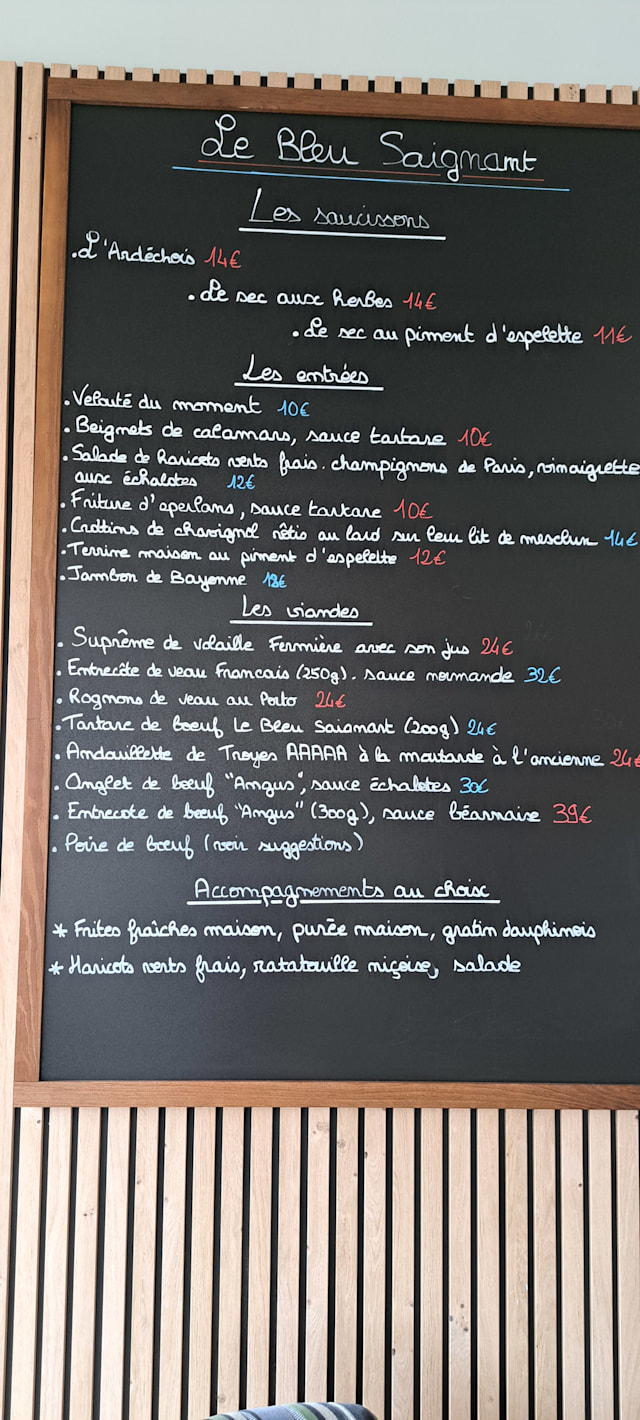 Le Bleu Saignant
Les saucissons
.L'Ardéchois 14€
.Le sec aux herbes 14€
.Le sec au piment d'espelette 11€
Les entrées
.Velouté du moment 10€
.Beignets de calamars, sauce tartare 10€
.Salade de haricots verts frais. champignons de Paris, vinaigrette
aux échalotes 12€
.Friture d'éperlans, sauce tartare 10€
.Crottins de chavignol rôtis au lard sur leur lit de mesclun 14€
.Terrine maison au piment d'espelette 12€
.Jambon de Bayonne
Les viandes
. Suprême de volaille Fermière avec son jus 24€
. Entrecôte de veau Francais (250g). sauce normande 32€
. Rognons de veau au Porto 24€
.Tartare de boeuf Le Bleu Saignant (200g) 24€
. Andouillette de Troyes AAAAA à la moutarde à l'ancienne 24€
. Onglet de boeuf "Angus", sauce échalotes 30€
. Entrecote de boeuf "Angus" (300g), sauce béarnaise 39€
. Poire de boeuf (voir suggestions)
Accompagnements au choix
* Frites fraîches maison, purée maison, gratin dauphinois
* Haricots verts frais, ratatouille niçoise, salade